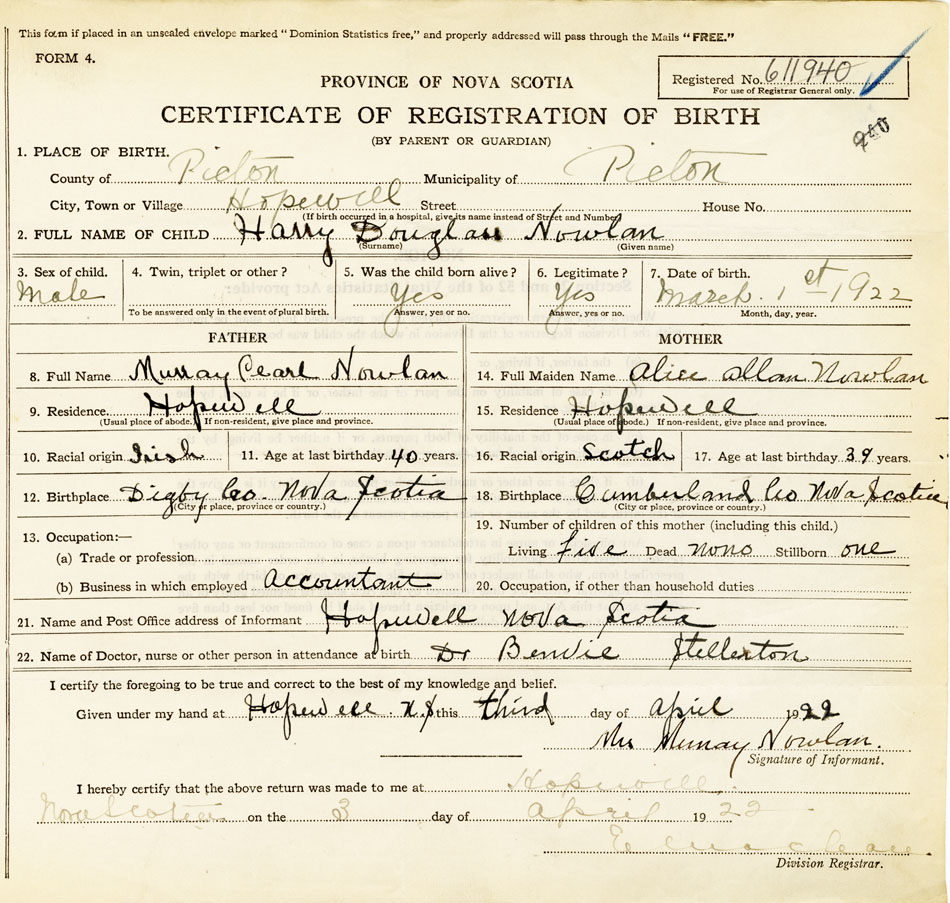 This form if placed in an unsealed envelope marked "Dominion Statistics free," and properly addressed will pass through the Mails "FREE."
FORM 4.
PROVINCE OF NOVA SCOTIA
Registered No. 611940
For use of Registrar General only.
CERTIFICATE OF REGISTRATION OF BIRTH
(BY PARENT OR GUARDIAN)
240
1. PLACE OF BIRTH.
County of Picton Municipality of Picton
City, Town or Village Hopewell Street House No.
(If birth occurred in a hospital, give its name instead of Street and Number)
2. FULL NAME OF CHILD Harry Douglass Nowlan
(Surname) (Given name)
3. Sex of child. 4. Twin, triplet or other? 5. Was the child born alive? 6. Legitimate? 7. Date of birth.
Male Yes Yes March 1st 1922
To be answered only in the event of plural birth. Answer, yes or no. Answer, yes or no. Month, day, year.
FATHER MOTHER
8. Full Name Murray Pearl Nowlan 14. Full Maiden Name Alice Allan Nowlan
9. Residence Hopewell 15. Residence Hopewell
(Usual place of abode.) If non-resident, give place and province. (Usual place of abode.) If non-resident, give place and province.
10. Racial origin Irish 11. Age at last birthday 40 years. 16. Racial origin Scotch 17. Age at last birthday 39 years.
12. Birthplace Digby Co. Nova Scotia 18. Birthplace Cumberland Co Nova Scotia
(City or place, province or country.) (City or place, province or country.)
13. Occupation:— 19. Number of children of this mother (including this child.)
(a) Trade or profession Living five Dead nono Stillborn one
(b) Business in which employed accountant 20. Occupation, if other than household duties
21. Name and Post Office address of Informant Hopewell Nova Scotia
22. Name of Doctor, nurse or other person in attendance at birth Dr Benvie Stellerton
I certify the foregoing to be true and correct to the best of my knowledge and belief.
Given under my hand at Hopewell N.S this third day of April 1922
Mrs Murray Nowlan.
Signature of Informant.
I hereby certify that the above return was made to me at Hopewell
Nova Scotia on the 3 day of April 1922
Division Registrar.